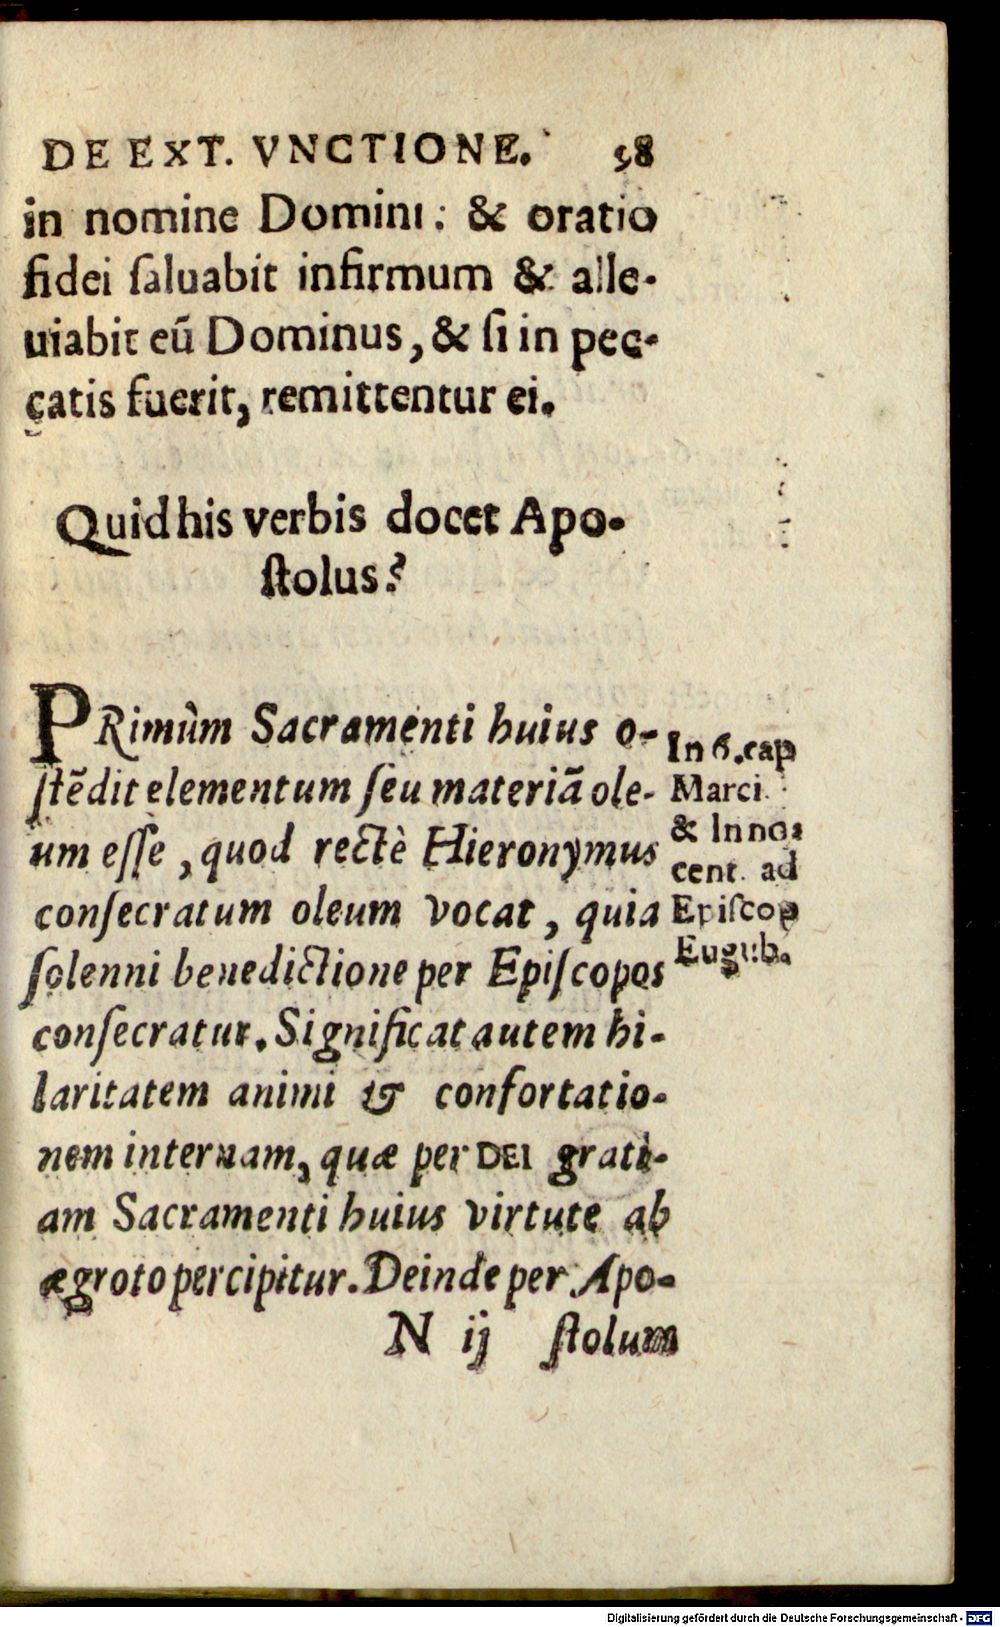 DE EXT. VNCTIONE. 58
in nomine Domini: & oratio
fidei ſaluabit infirmum & alle-
uiabit eū Dominus, & ſi in pec-
catis fuerit, remittentur ei.
Quid his verbis docet Apo-
ſtolus?
PRimùm Sacramenti huius o-
ſtēdit elementum ſeu materiā ole-
um eſſe, quod rectè Hieronymus
conſecratum oleum vocat, quia
ſolenni benedictione per Epiſcopos
conſecratur. Significat autem hi-
laritatem animi & confortatio-
nem internam, quæ per DEI grati-
am Sacramenti huius virtute ab
ægroto percipitur. Deinde per Apo-
N ij ſtolum
In 6. cap
Marci.
& Inno-
cent. ad
Epiſcop
Eugub.
Digitalisierung gefördert durch die Deutsche Forschungsgemeinschaft - DFG